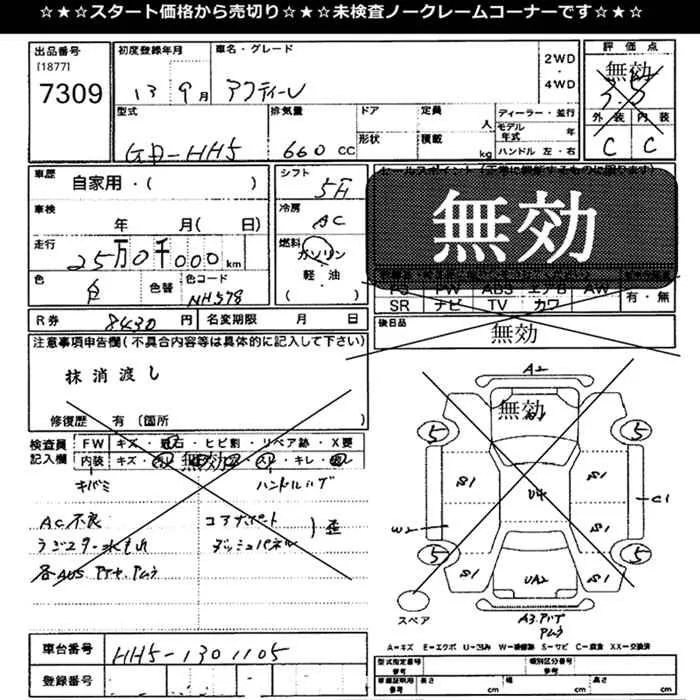 ☆★☆スタート価格から売切り☆★☆未検査ノークレームコーナーです☆★☆
出品番号 初度登録年月 車名・グレード 2WD・4WD 評価点
[1877]
7309 13 9月 アクティーV 無効 3.5
外装 内装
C C
型式 排気量 ドア 定員 人 ディーラー・並行
形状 積載 kg モデル年式 年
HH5 660cc ハンドル 左・右
車歴 自家用・( ) シフト 5F セールスポイント
車検 年 月( 日) 冷房 AC 無効
走行 25万0千000km 燃料 ガソリン
軽・油
( )
色 白 色替 色コード NH578
PS PW ABS エアB AW
SR ナビ TV カワ 有・無
R券 8430円 名変期限 月 日 後日品 無効
注意事項申告欄(不具合内容等は具体的に記入して下さい)
抹消渡し
修復歴 有 〔箇所 〕
検査員記入欄 FW キズ・飛石・ヒビ割・リペア跡・X要
内装 キズ・ 無効 ・キレ・
キバミ ハンドルハゲ
AC不良 コアサポート 歪
ラジエター水もれ ダッシュパネル
車台番号 HH5-1301105
登録番号
A2
無効
5 5
S1 S1
U4 C1
W2 S1
5 5
S1 UA2 S1
スペア
A3
A=キズ E=エクボ U=凹み W=補修跡 S=サビ C=腐食 XX=交換済
型式指定番号 参考 類別区分番号 参考
車検証明用 参考 長さ cm 幅 cm 高さ cm